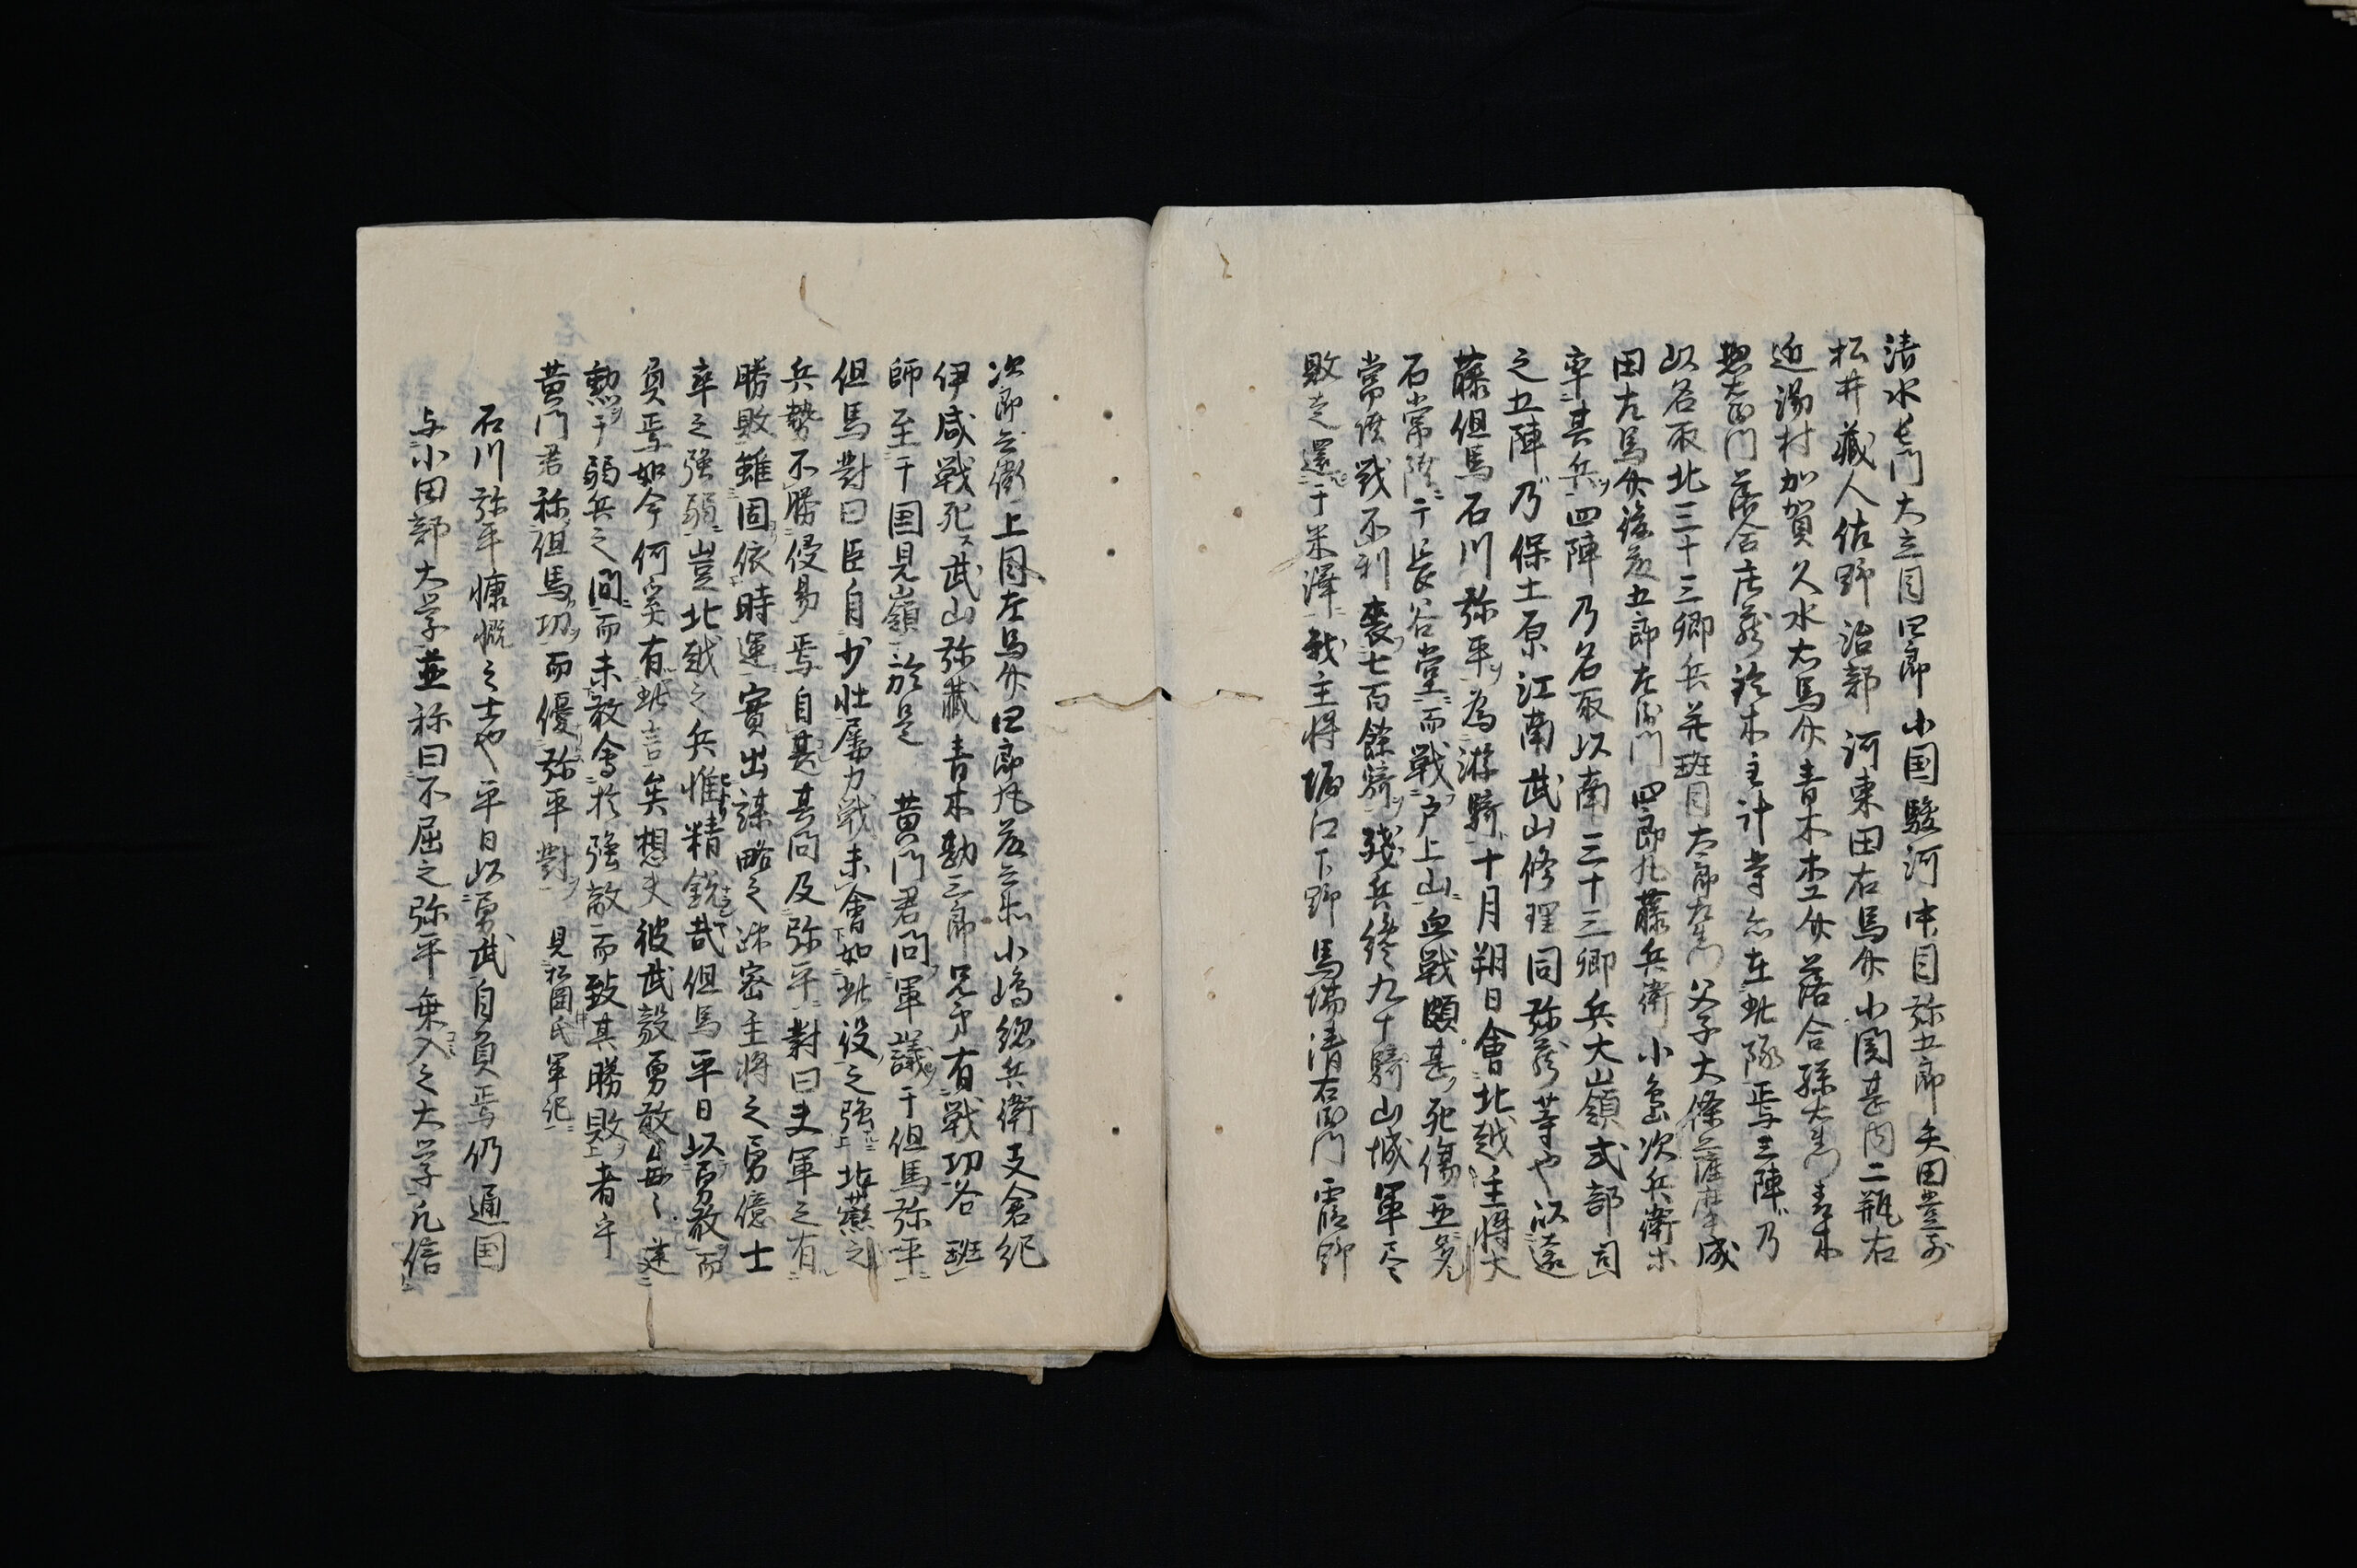 清水長門大立目四郎小国駿河中目弥五郎矢田豊前
松井蔵人佐野治部河東田右馬介小関甚内二瓶右
近湯村加賀久水右馬介青木杢介落合孫右衛門青木
惣右衛門落合庄蔵鈴木主計等亦在此隊焉三陣乃
以名取北三十三郷兵并班目太郎左衛門父子大條薩摩成
田左馬介後藤五郎左衛門四郎九藤兵衛小島次兵衛等
率其兵四陣乃名取以南三十三郷兵大嶺式部司
之五陣乃保土原江南武山修理同弥蔵等也以遠
藤但馬石川弥平為游騎十月朔日會北越主将大
石常陸于長谷堂而戦戸上山血戦頗甚死傷亜矣
常陸戦不利喪七百餘騎残兵終九十騎山城軍尽
敗走還于米澤我主将堀江下野馬場清右衛門霞野
次郎兵衛上國左馬介四郎九藤兵衛小嶋総兵衛支倉紀
伊咸戦死武山弥藏青木勘三郎兄弟有戦功各班
師至于国見嶺於是黄門君問軍議于但馬弥平
但馬對曰臣自少壮屡力戦未會如此役之強北黨之
兵勢不勝侵易焉自甚其問及弥平對曰夫軍之有
勝敗雖固依時運實出謀略之疎密主将之勇億士
卒之強弱豈北越之兵惟精鋭哉但馬平日以勇敢而
負焉如今何奚有此言矣想夫彼武毅勇敢毎々建
勲于弱兵之間而未敢會於強敵而致其勝敗者乎
黄門君称但馬功而優弥平對 見松岡氏軍紀
石川弥平慷慨之士也平日以勇武自負焉仍通国
与小田部大学並称曰不屈之弥平乗入之大学凡信